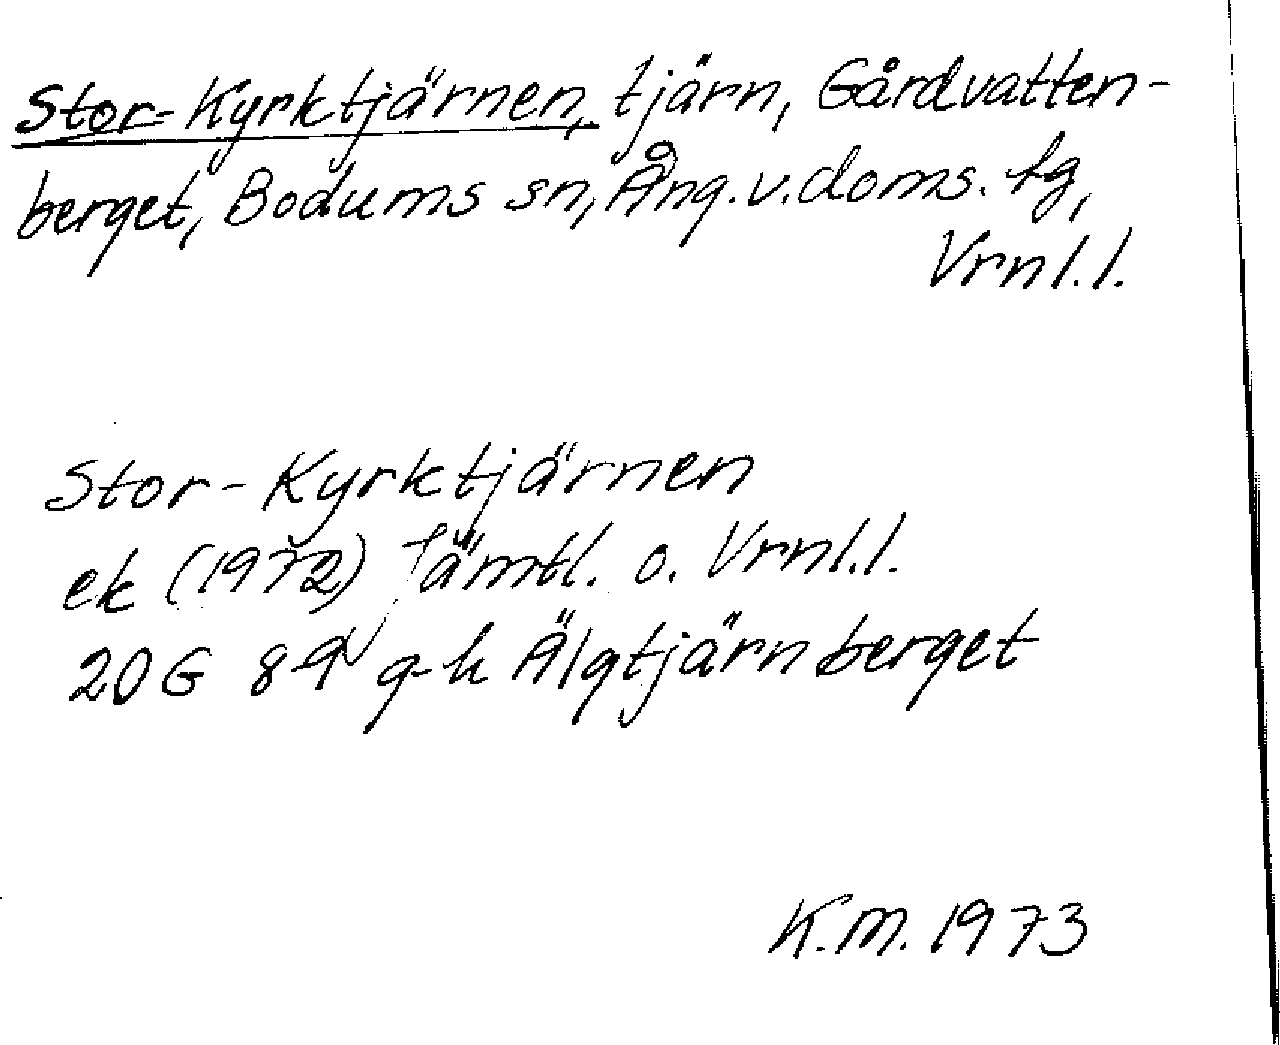 Stor-Kyrktjärnen, tjärn, Gårdvatten-
berget, Bodums sn, Ång.v.doms.tg,
Vrnl.l.
Stor-Kyrktjärnen
ek (1972) Jämtl. o. Vrnl.l.
20G 8-9 g-h Älgtjärnberget
K.M. 1973